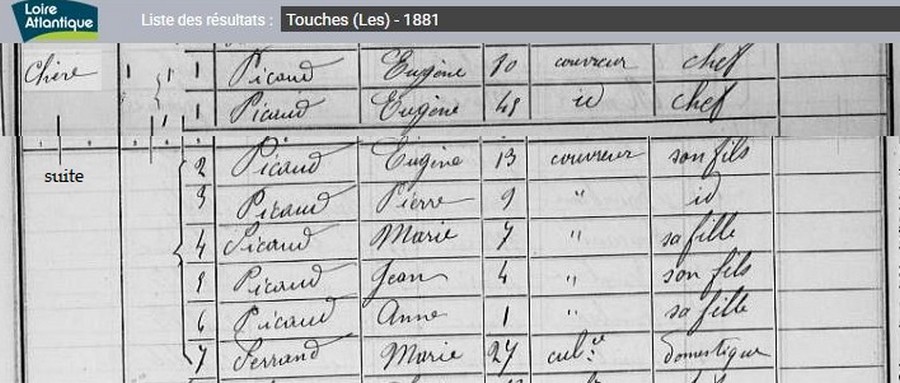 Loire Atlantique
Liste des résultats : Touches (Les) - 1881
Chère 1 1 1 Picaud Eugène 80 couvreur chef
1 1 Picaud Eugène 45 id chef
suite
2 Picaud Eugène 13 couvreur son fils
3 Picaud Pierre 9 " id
4 Picaud Marie 7 " sa fille
5 Picaud Jean 4 " son fils
6 Picaud Anne 1 " sa fille
7 Ferrand Marie 27 cult.ce domestique